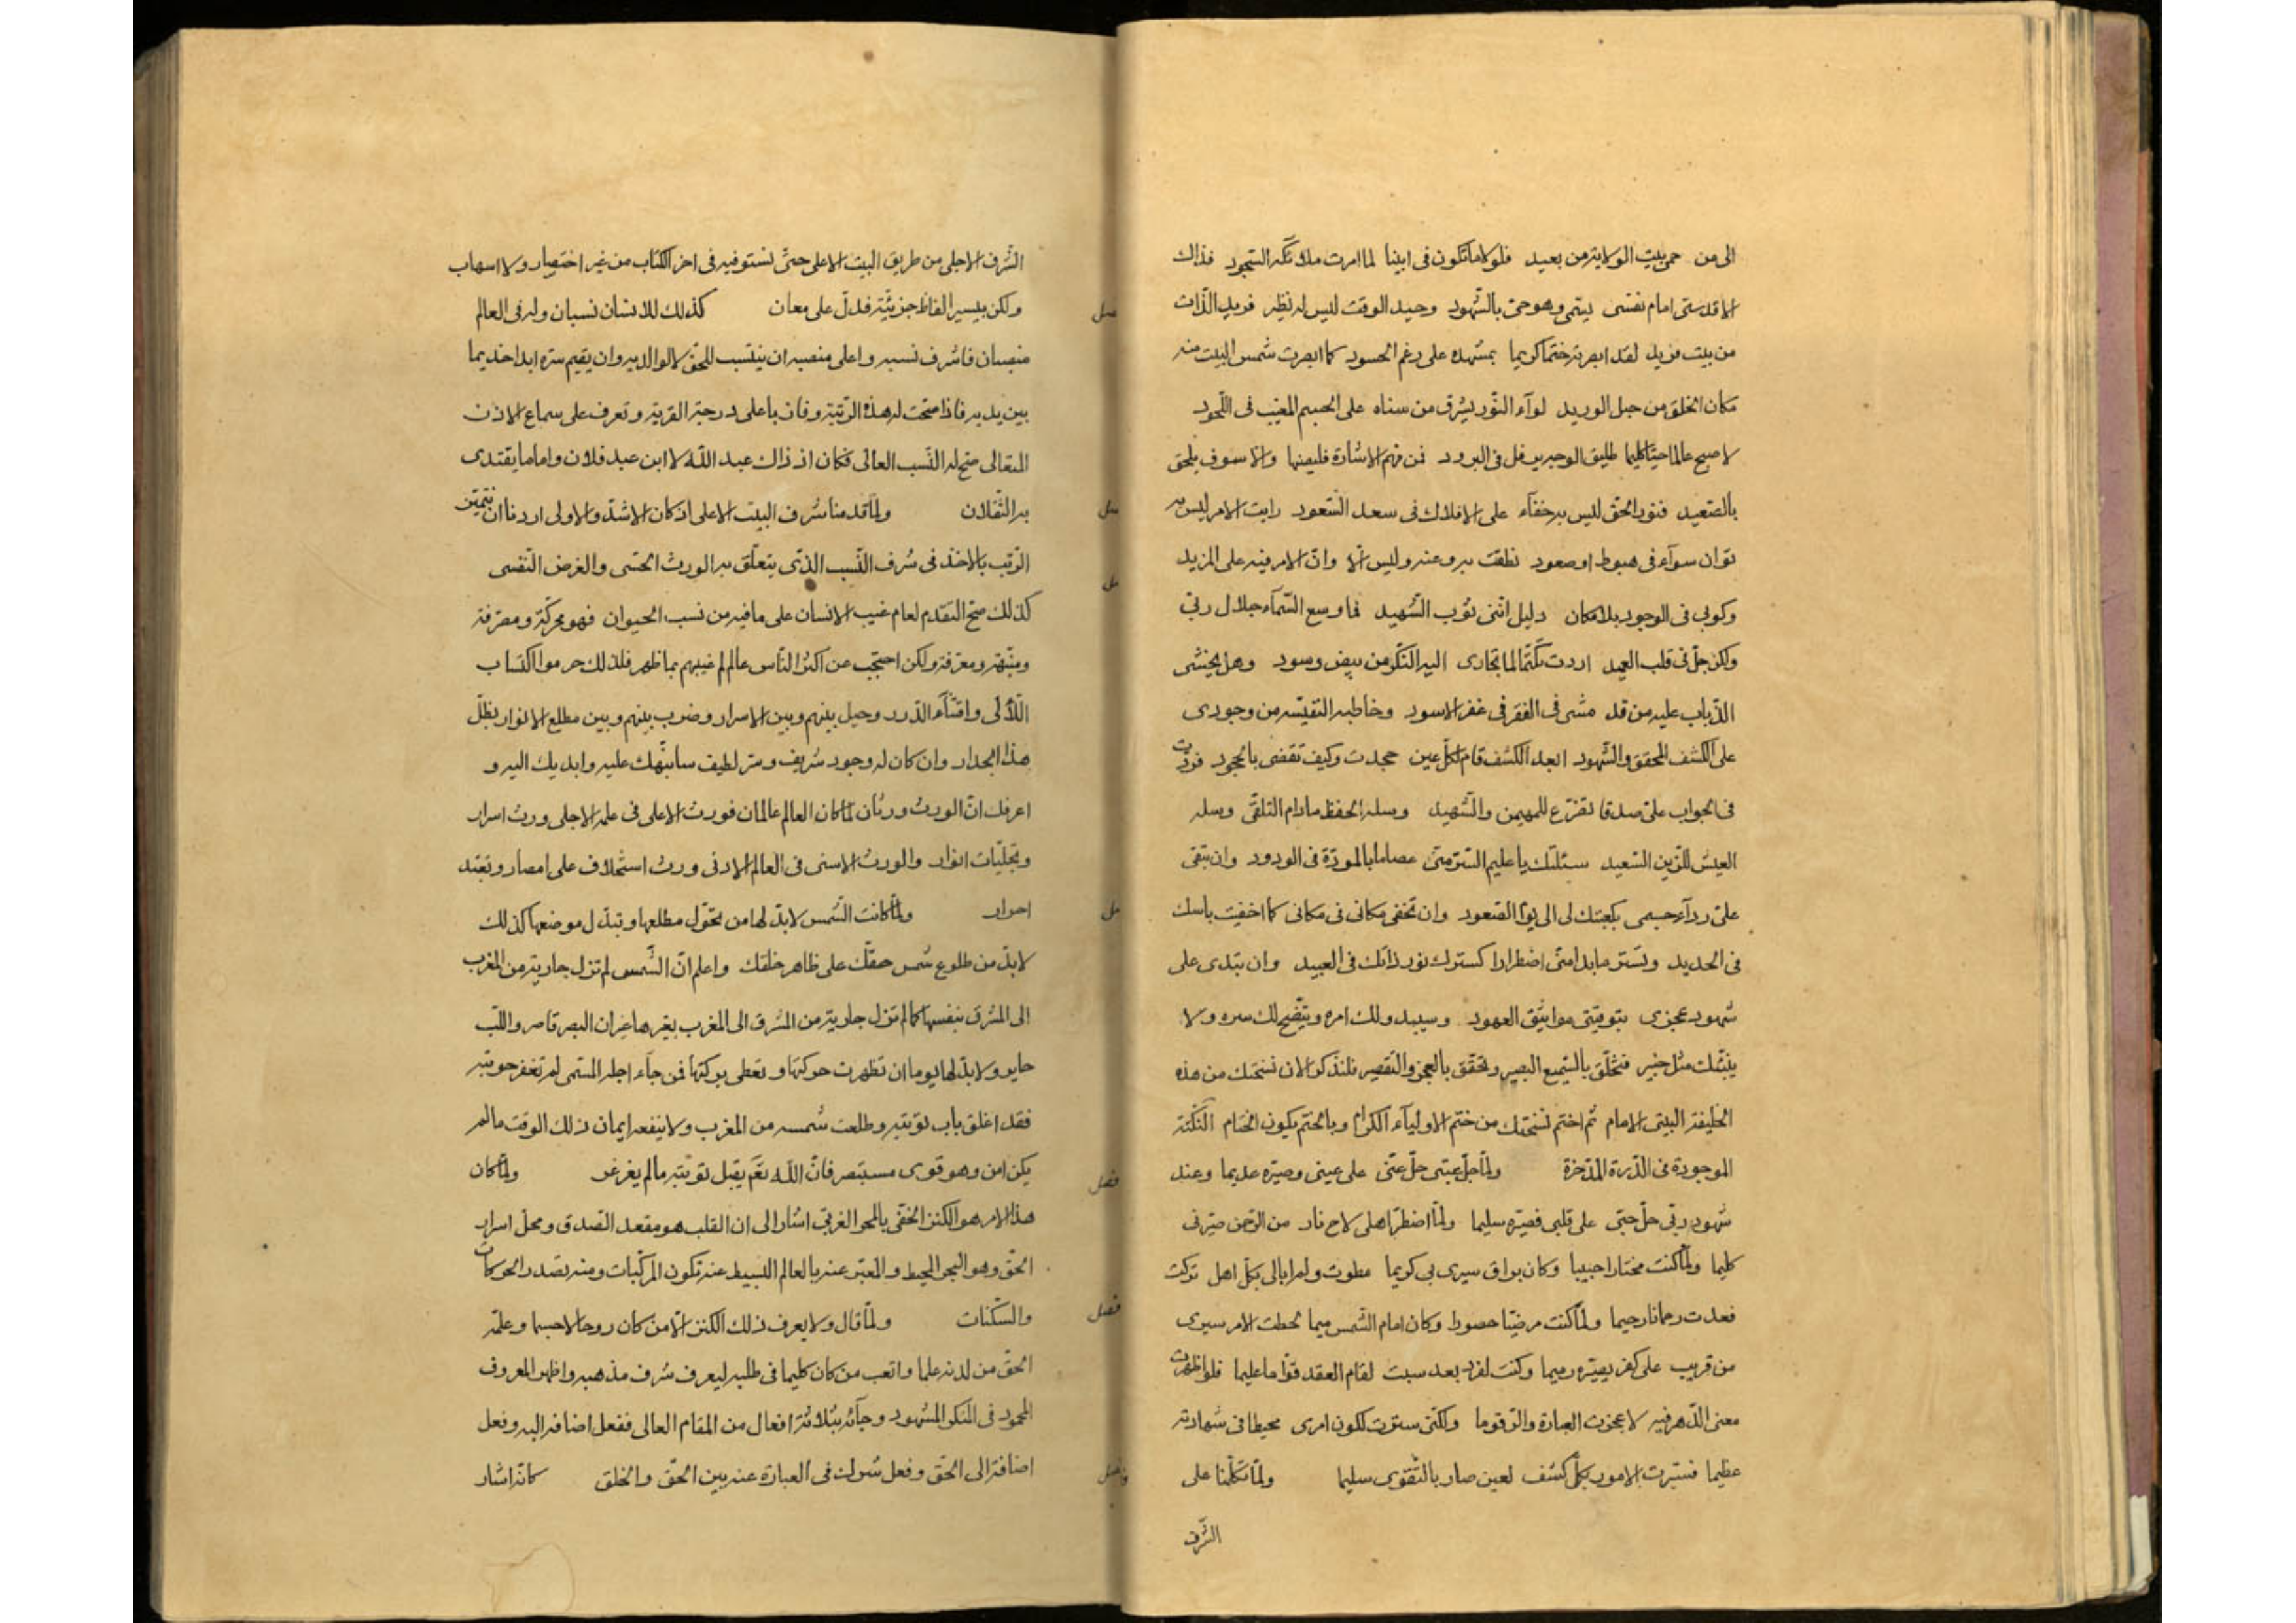 الى من حمى بيت الولاية من بعيد فلولا ما تكون فى ابينا لما امرت ملائكه السجود فذاك
الاقدسى امام نفسى يسمى وهو حى بالشهود وحيد الوقت ليس له نظير فريد الذات
من بيت فريد لقد ابصرته ختما كريما بمشهده على رغم الحسود كما ابصرت شمس البيت منه
مكان الخلق من حبل الوريد لوآء النور يشرق من سناه على الجسم المغيب فى اللحود
لاصبح عالما حيا كليما طليق الوجه يرفل فى البرود فمن فهم الاشارة فليصنها والا سوف يلحق
بالصعيد فنور الحق ليس به خفآء على الافلاك فى سعد السعود رايت الامر ليس به
توان سوآء فى هبوط او صعود نطقت به وعنه وليس الا وان الامر فيه على المزيد
وكونى فى الوجود بلا مكان دليل اننى ثوب الشهيد فما وسع السمآء جلال ربى
ولكن حل فى قلب العميد اردت تكتما لما تجارى اليه النكر من بيض وسود وهل يخشى
الذباب عليه من قد مشى فى القفر فى غفر الاسود وخاطبه النفيسه من وجودى
على الكشف المحقق والشهود ابعد الكشف قام لكل عين جحدت وكيف تقضى بالجحود فردت
فى الجواب على صدقا تضرع للمهيمن والشهيد وسله الحفظ مادام التلقى وسله
العيش للزمن السعيد سئلتك يا عليم السر منى عصاما بالمودة فى الودود وان تبقى
على ردآء جسمى بكعبتك لى الى يوم الصعود وان تخفى مكانى فى مكانى كما اخفيت باسك
فى الحديد وتستر ما بدا منى اضطرارا كسترك نور ذاتك فى العبيد وان تبدى على
شهود عجزى بتوفيتى مواثيق العهود وسيبدو لك امره ويتضح لك سره ولا
ينبئك مثل خبير فتخلق بالسميع البصير وتحقق بالعجز والتقصير فلنذكر الان نسختك من هذه
الخليفة البيتى الامام ثم اختم نسختك من ختم الاوليآء الكرام وبالختم يكون الختام النكتة
الموجودة فى الدرة المدخرة ولما جل عيبى حل عنى على عينى وصيره عديما وعند
شهود ربى حل حبى على قلبى فصيره سليما ولما اضطر اهلى لاح نار من الرحمن صيرنى
كليما ولما كنت مختارا حبيبا وكان براق سيرى بى كريما مطوت ولم ابالى بكل اهل تركت
فعدت رحمانا رحيما ولما كنت مرضيا حصورا وكان امام الشمس ميما لحظت الامر يسرى
من قريب على كفر يصيره رميما وكنت لفرد بعد سبت لقام العقد قواما عليما فلو اظهرت
معنى الدهر فيه لاعجزت العبارة والرقوما ولكنى سترت لكون امرى محيطا فى شهادته
عظيما فسترت الامور بكل كشف لعين صار بالتقوى سليما ولما تكلمنا على
الشرف
الشرف الاجلى من طريق البيت الاعلى حتى نستوفيه فى اخر الكتاب من غير اختصار ولا اسهاب
ولكن بيسير الفاظ جزئية فدل على معان كذلك للانسان نسبان وله فى العالم
منصبان فاشرف نسبه واعلى منصبه ان ينتسب للحق لا لوالديه وان يقيم سره ابدا خديما
بين يديه فاذا صحت له هذه الرتبة وفاز باعلى درجة القربة وتعرف على سماع الاذن
المتعالى صح له النسب العالى فكان اذ ذاك عبد الله لا ابن عبد فلان واماما يقتدى
به الثقلان ولما قدمنا شرف البيت الاعلى اذ كان الاشد والاولى اردنا ان تتميز
الرتب بالاخذ فى شرف النسب الذى يتعلق به الورث الحسى والغرض النفسى
كذلك صح التقدم لعام غيب الانسان على ما فيه من نسب الحيوان فهو محركة ومصرفة
ومنبهة ومعرفة ولكن احتجب عن اكثر الناس عالم غيبهم بما ظهر فلذلك حرموا اكتساب
اللآلى واقتنآء الدرر وحيل بينهم وبين الاسرار وضرب بينهم وبين مطلع الانوار بظل
هذا الجدار وان كان له وجود شريف وسر لطيف سانبهك عليه وابديك اليه و
اعرفك ان الورث ورثان لما كان العالم عالمان فورث الاعلى فى علم الاجلى ورث اسرار
وتجليات انوار والورث الاسنى فى العالم الادنى ورث استخلاف على امصار وتعبد
احرار ولما كانت الشمس لابد لها من تحول مطلعها وتبدل موضعها كذلك
لابد من طلوع شمس حقك على ظاهر خلقك واعلم ان الشمس لم تزل جارية من المغرب
الى المشرق بنفسها كما لم تزل جارية من المشرق الى المغرب بغيرها غير ان البصر قاصر واللب
حاير ولابد لها يوما ان تظهرت حركتها وتعطى بركتها فمن جآء اجله المسمى لم تغفر حوبته
فقد اغلق باب توبته وطلعت شمسه من المغرب ولا ينفعه ايمان ذلك الوقت ما لم
يكن امن وهو قوى مستبصر فان الله تعم يقبل توبته مالم يغرغر ولما كان
هذا الامر هو الكنز الخفى بالمحو الغربى اشار الى ان القلب هو مقعد الصدق ومحل اسرار
الحق وهو البحر المحيط والمعبر عنه بالعالم البسيط عنه تكون المركبات ومنه تصدر الحركات
والسكنات ولما قال ولا يعرف ذلك الكنز الا من كان روحا لا جسما وعلمه
الحق من لدنه علما واتعب من كان كليما فى طلبه ليعرف شرف مذهبه واظهر المعروف
المحمود فى المنكر المشهود وجآئه بثلاثة افعال من المقام العالى ففعل اضافه اليه وفعل
اضافة الى الحق وفعل شرك فى العبارة عنه بين الحق والخلق كانه اشار
فصل
فصل